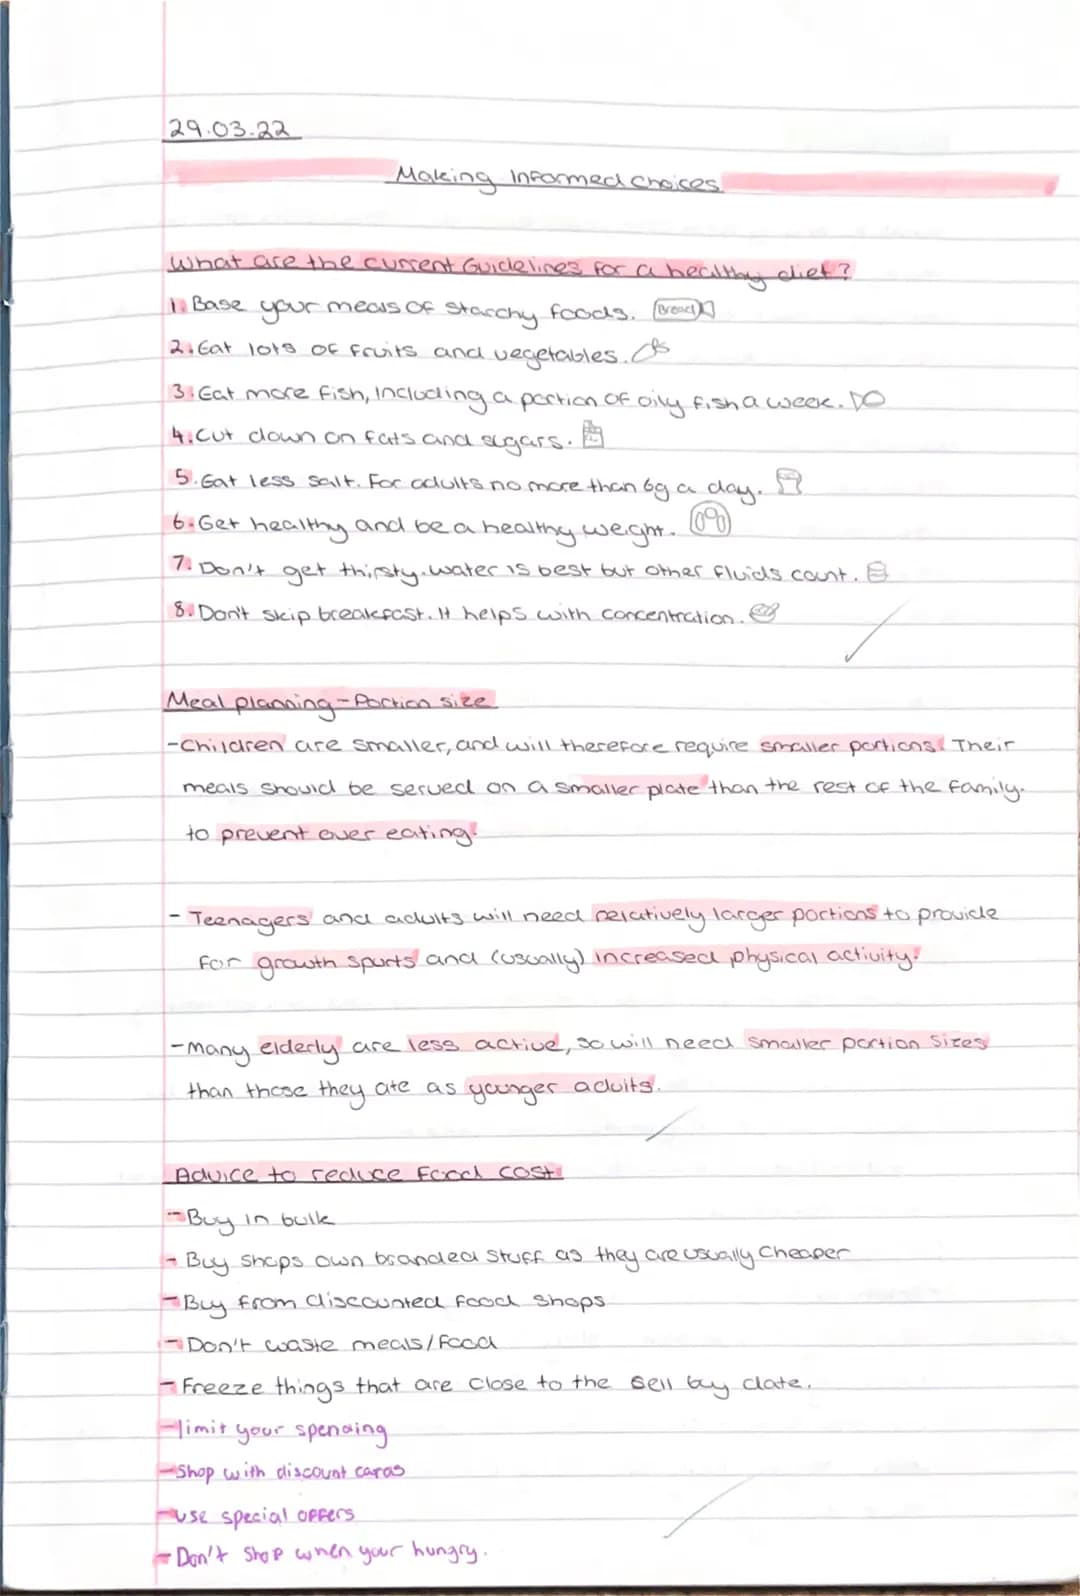 29.03.22
Making Informed Choices
What are the current Guidelines for a healthy diet?
1. Base your meals of starchy foods. Bread
2. Eat lots of fruits and vegetables.
3. Eat more fish, Including a portion of oily fish a week.
4. Cut down on fats and sugars.
5. Eat less salt. For adults no more than 6g a day.
6. Get healthy and be a healthy weight.
7. Don't get thirsty. water is best but other fluids count.
8. Don't skip breakfast. It helps with concentration.
Meal planning - Portion size
- Children are smaller, and will therefore require smaller portions. Their
meals should be served on a smaller plate than the rest of the family.
to prevent over eating.
- Teenagers and adults will need relatively larger portions to provide
for growth spurts and (usually) increased physical activity.
- Many elderly are less active, so will need smaller portion sizes
than those they ate as younger adults.
Advice to reduce food cost
- Buy in bulk
- Buy shops own branded stuff as they are usually Cheaper
- Buy from discounted food shops
- Don't waste meals/food
- Freeze things that are close to the sell by date.
- limit your spending
- Shop with discount cards
- use special offers
- Don't shop when your hungry.